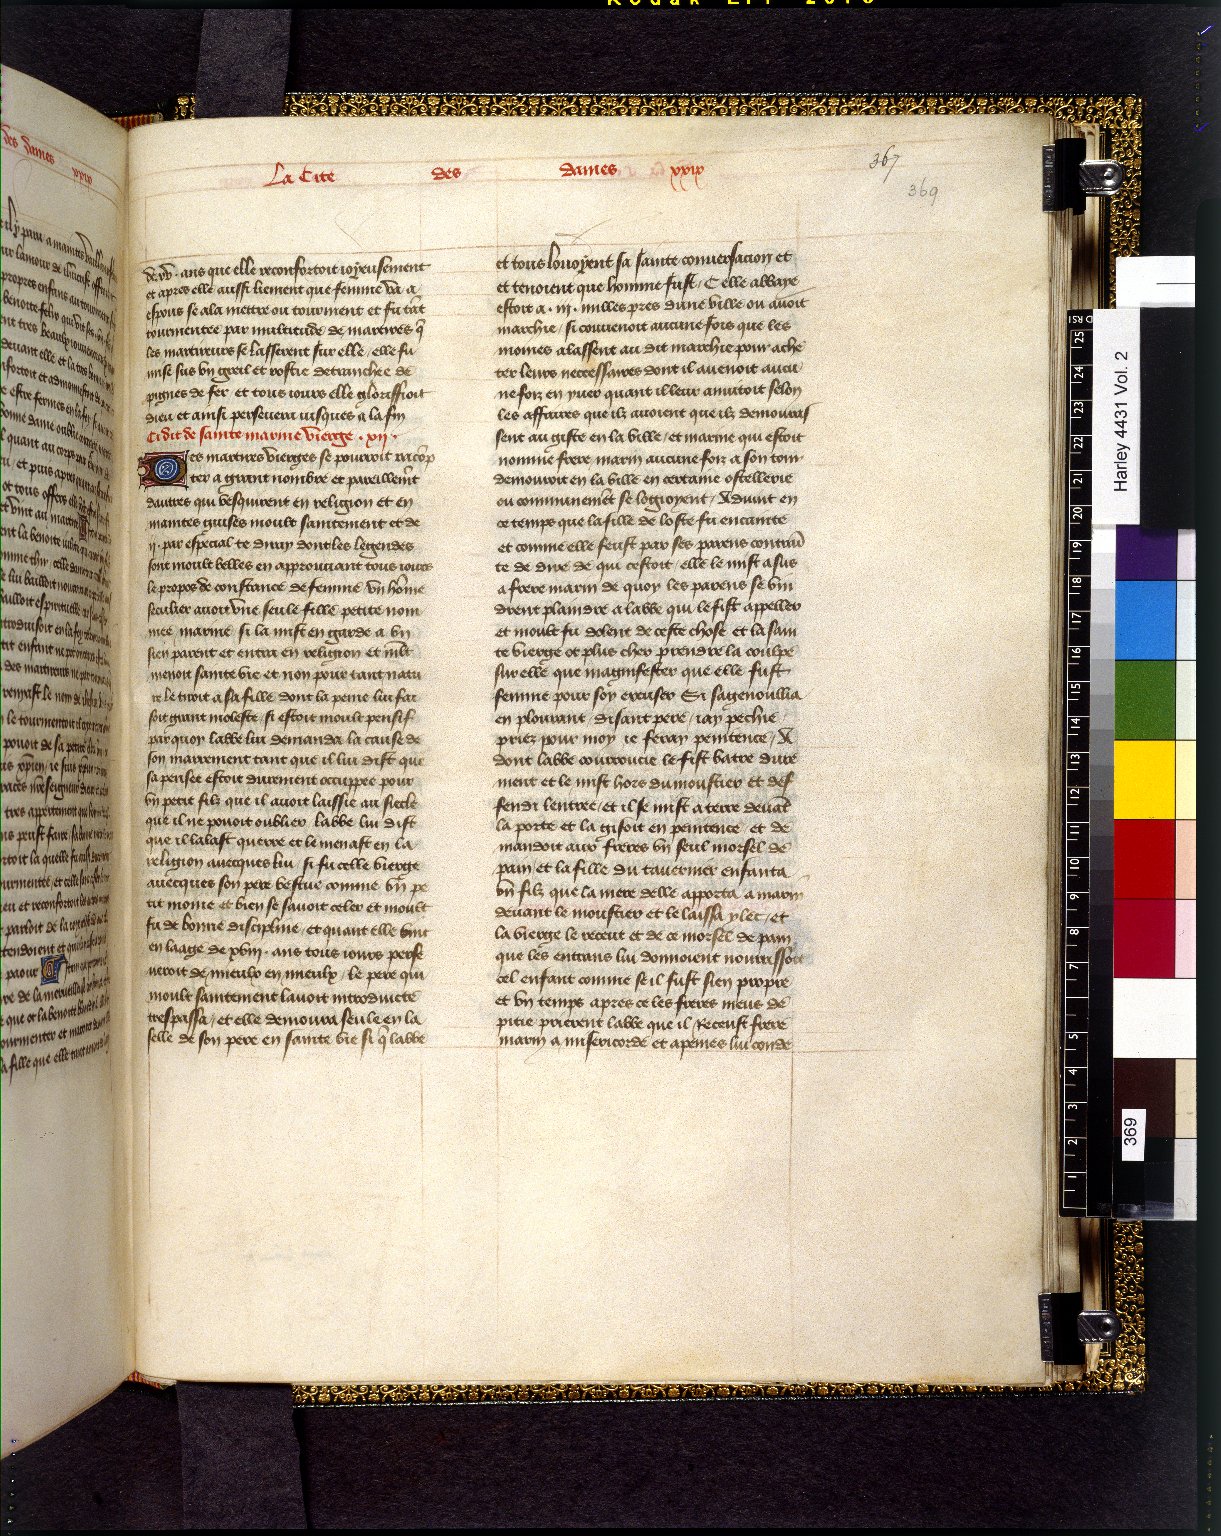 La Cite des dames xxix
367
369
de xv. ans que elle reconfortoit ioyeusement
et apres elle aussi liement que femme va a
espous se ala mettre ou tourment et fu tāt
tourmentee par multitude de martires q̄
les martireurs se lasserent sur elle, elle fu
mise sus vn greil et rostie detranchee de
pignes de fer et tous iours elle gloriffioit
dieu et ainsi persevera iusques a la fin
Ci dit de sainte marine vierge . xii .
Des martires vierges se pourroit racōp
ter a grant nombre et pareillemēt
dautres qui vesquirent en religion et en
maintes guises moult saintement et de
ii. par especial te diray dont les legendes
sont moult belles en approuvant tous iours
le propos de constance de femme vn hōme
seculier avoit vne seule fille petite nom
mee marine / si la mist en garde a vn
sien parent et entra en religion et mlt
menoit sainte vie et non pour tant natu
re le tiroit a sa fille dont la peine lui fai
soit grant moleste / si estoit moult pensif
par quoy labbe lui demanda la cause de
son marrement tant que il lui dist que
sa pensee estoit durement occuppee pour
vn petit filz que il avoit laissie au siecle
que il ne pouoit oublier labbe lui dist
que il lalast querre et le menast en la
religion avecques lui / si fu celle vierge
avecques son pere vestue comme vn pe
tit moine et bien se savoit celer et moult
fu de bonne discipline / et quant elle vint
en laage de xviii. ans tous iours perse
veroit de mieulx en mieulx / le pere qui
moult saintement lavoit introducte
trespassa / et elle demoura seule en la
selle de son pere en sainte vie si q̄ labbe
et tous louoyent sa sainte conversacion et
et tenoient que homme fust / Celle abbaye
estoit a . iii . milles pres dune ville ou avoit
marchie / si couvenoit aucune fois que les
moines alassent au dit marchie pour ache
ter leurs necessaires dont il avenoit aucu
ne foiz en yver quant il leur anuitoit selon
les affaires que ilz avoient que ilz demouras
sent au giste en la ville / et marine qui estoit
nommé frere marin aucune foiz a son tour
demouroit en la ville en certaine ostellerie
ou communemēt se logioyent / Advint en
ce temps que la fille de loste fu encainte
et comme elle feust par ses parens contrai
te de dire de qui cestoit / elle le mist a sus
a frere marin de quoy les parens se vin
drent plaindre a labbe qui le fist appeller
et moult fu dolent de ceste chose et la sain
te vierge ot plus cher prendre la coulpe
sur elle que magnifester que elle fust
femme pour soy excuser Si sagenoullia
en plourant / disant pere / iay pechie
priez pour moy ie feray penitence / A
dont labbe courroucie le fist batre dure
ment et le mist hors du moustier et def
fendi lentree / et il se mist a terre devāt
la porte et la gisoit en penitence et de
mandoit aux freres vn seul morsel de
pain / et la fille du tavernier enfanta
vn filz que la mere delle apporta a marin
devant le moustier et le laissa ylec / et
la vierge le receut et de ce morsel de pain
que les entrans lui donnoient nourrissoit
cel enfant comme se il fust sien propre
et vn temps apres ce les freres meus de
pitie prierent labbe que il Receust frere
marin a misericorde et a peines lui conde
Harley 4431 Vol. 2
369